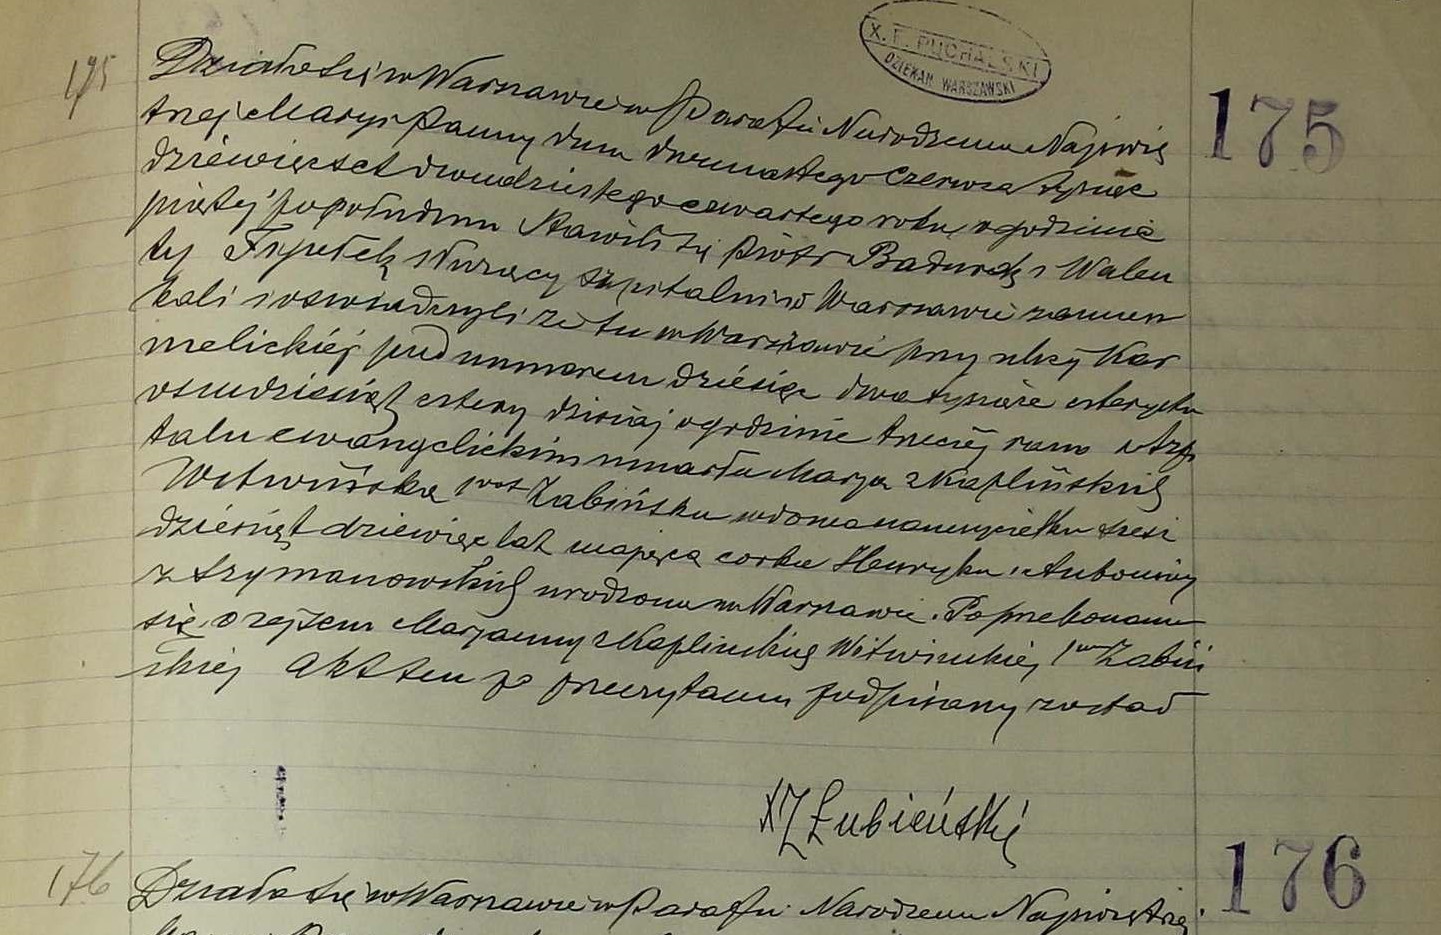 X. F. PUCHALSKI
DZIEKAN WARSZAWSKI
175
175
Działo się w Warszawie w Parafii Narodzenia Najświę
tszej Maryi Panny dnia dwunastego Czerwca tysiąc
dziewięćset dwudziestego czwartego roku, o godzinie
piątej po południu Stawili się Piotr Badurek i Walen
ty służący szpitalni w Warszawie zamiesz
kali i oświadczyli że tu w Warszawie przy ulicy Kar
melickiej pod numerem dziesięć dwa tysiące czterysta
osiemdziesiąt cztery dzisiaj o godzinie trzeciej rano w Szpi
talu ewangelickim umarła Marya z Kaplińskich
Witwińska 1mo Żabińska wdowa sześć
dziesiąt dziewięć lat mająca córka Henryka i Antoniny
z Szymanowskich urodzona w Warszawie. Po przekonaniu
się o zejściu Maryanny z Kaplińskich Witwińskiej 1mo Żabiń
skiej Akt ten po przeczytaniu podpisany został
X Z Łubieński
176
176
Działo się w Warszawie w Parafii Narodzenia Najświętszej